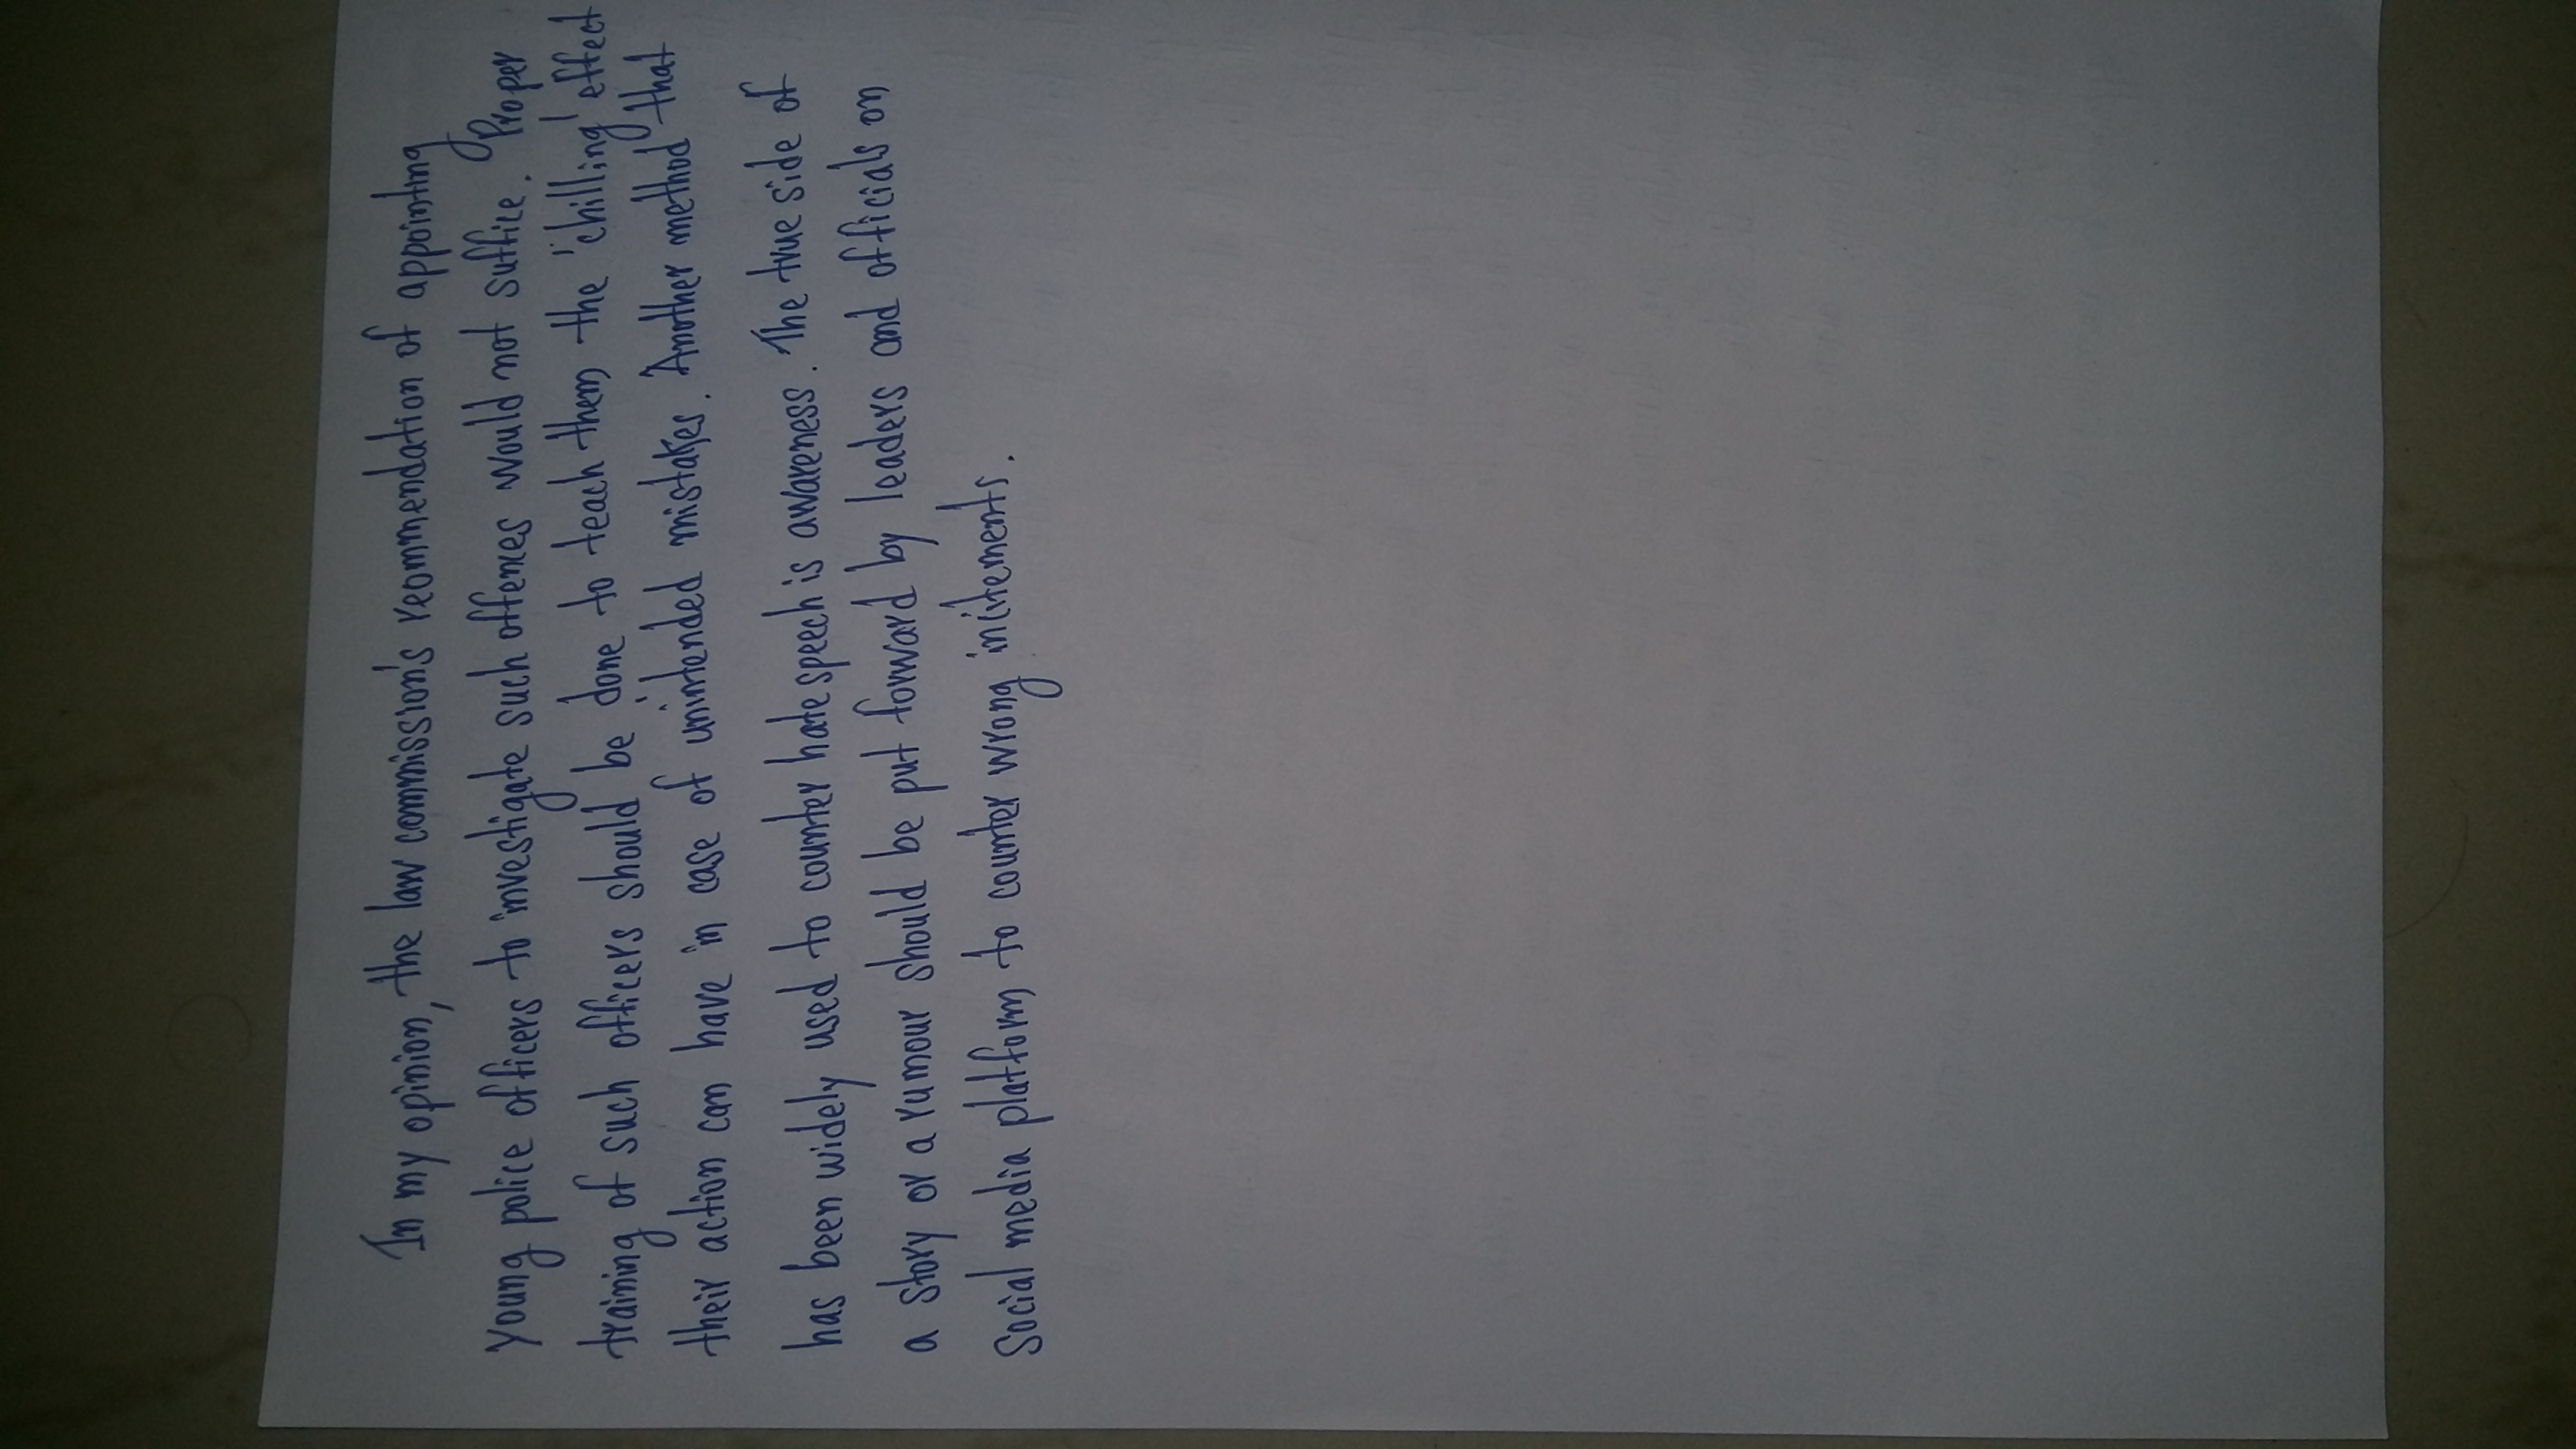 In my opinion, the law commission's reommendation of appointing
young police officers to investigate such offenes would not suffice. Proper
training of such officers should be done to teach them the 'chilling' effect
their action can have in case of unintended mistakes. Another method that
has been widely used to counter hate speech is awareness. The true side of
a story or a rumour should be put forward by leaders and officials on
Social media platform to counter wrong incitements.